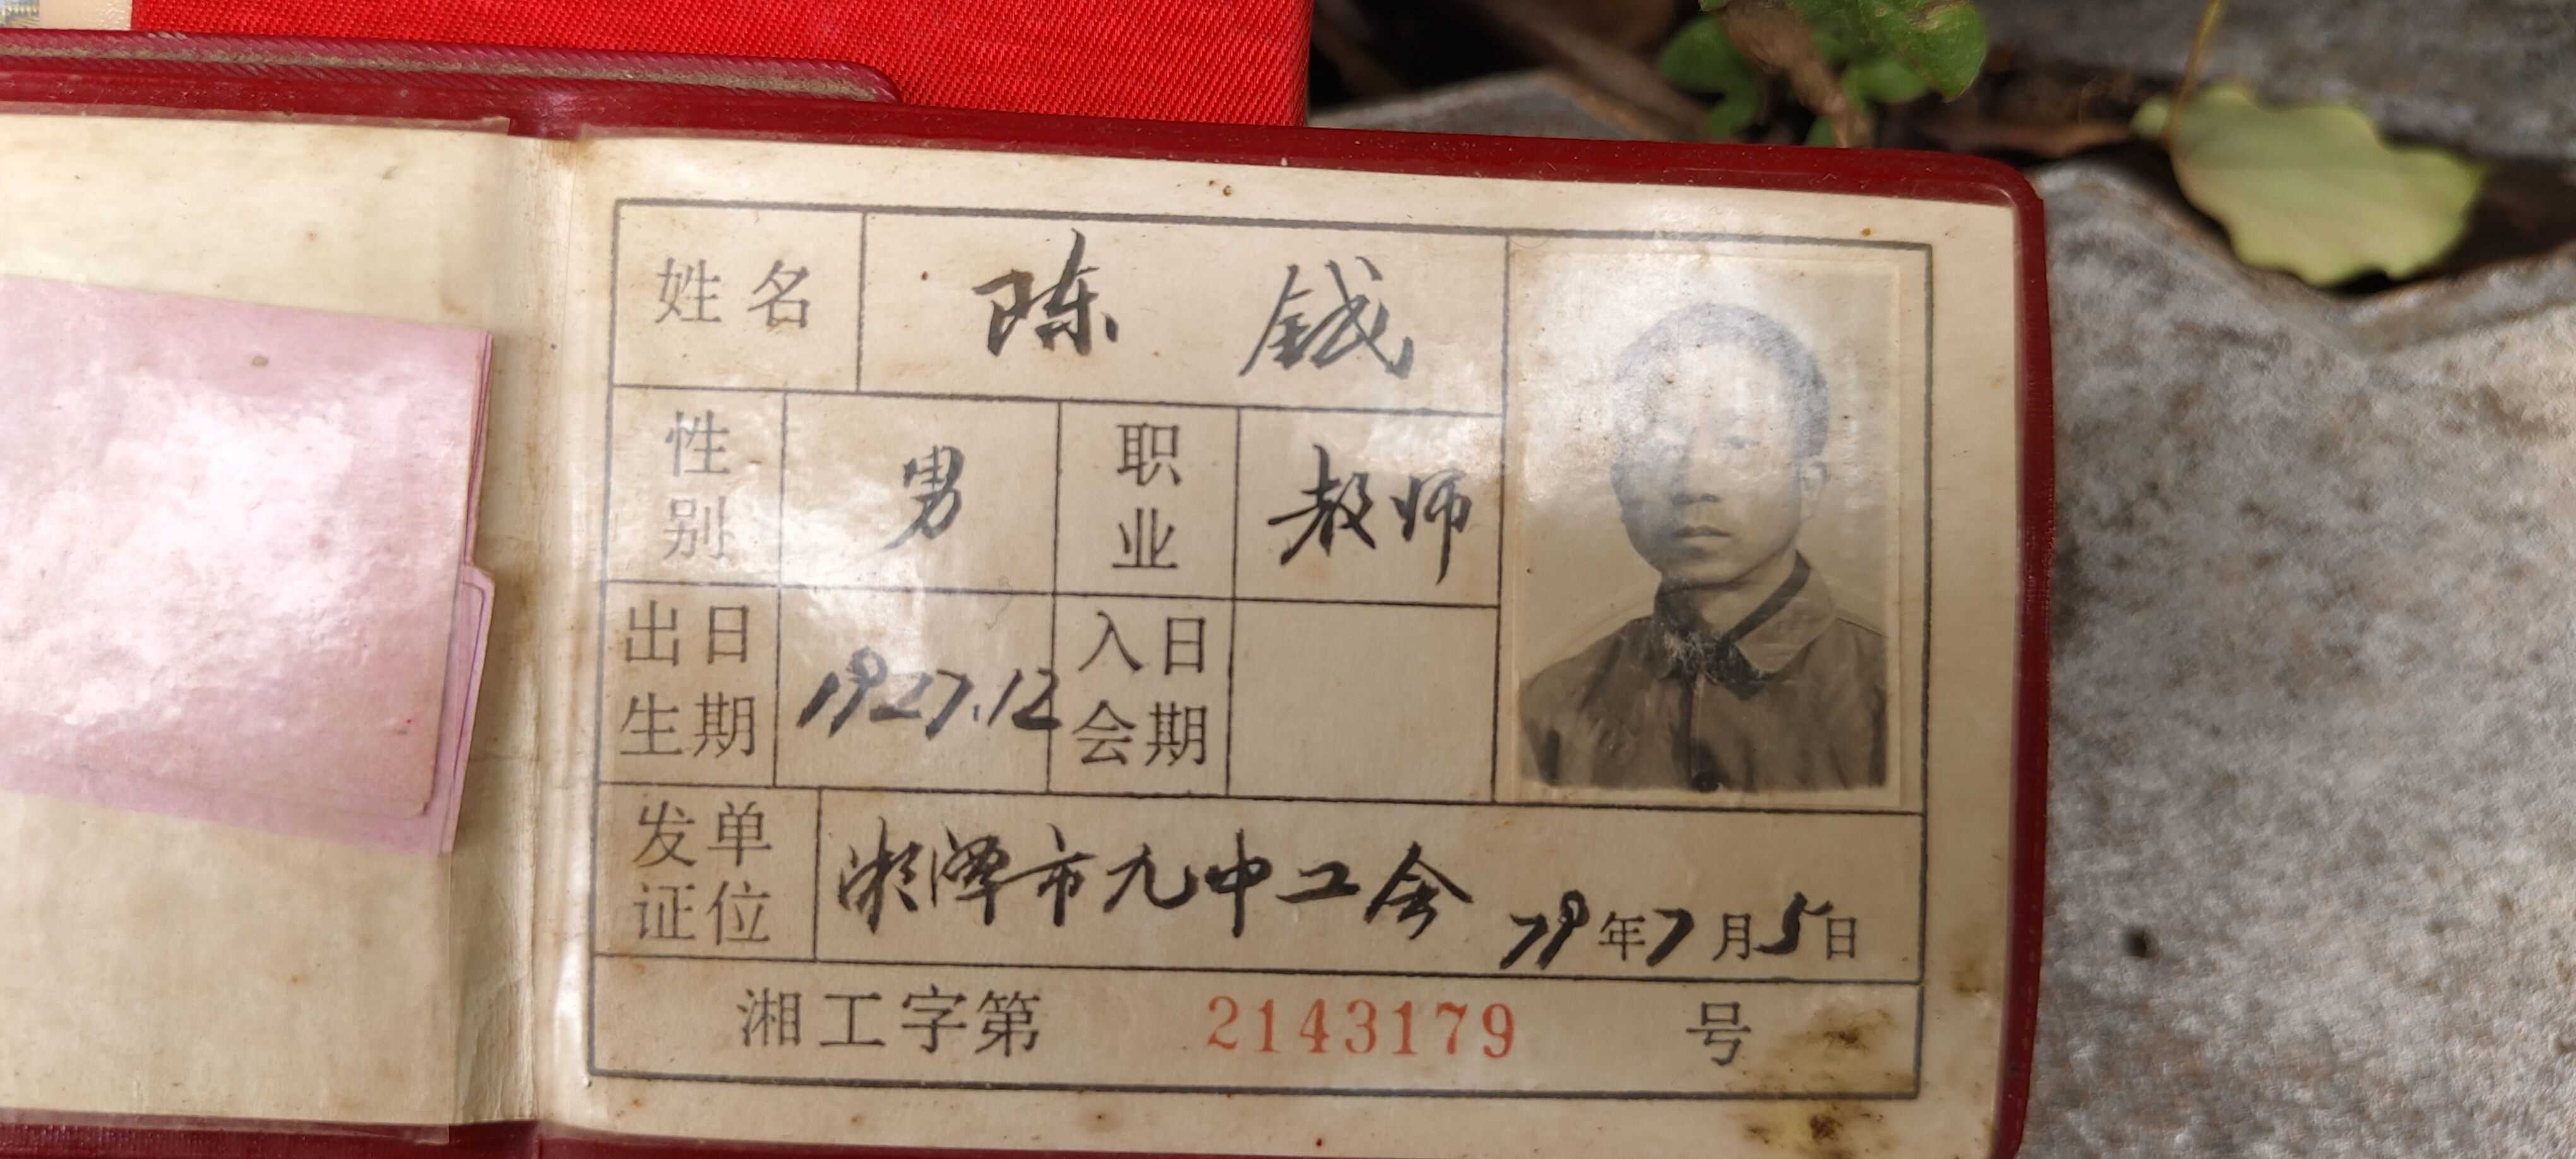 姓名 陈 钺
性别 男 职业 教师
出生日期 1927.12 入会日期
发证单位 湘潭市九中工会 79年7月5日
湘工字第 2143179 号